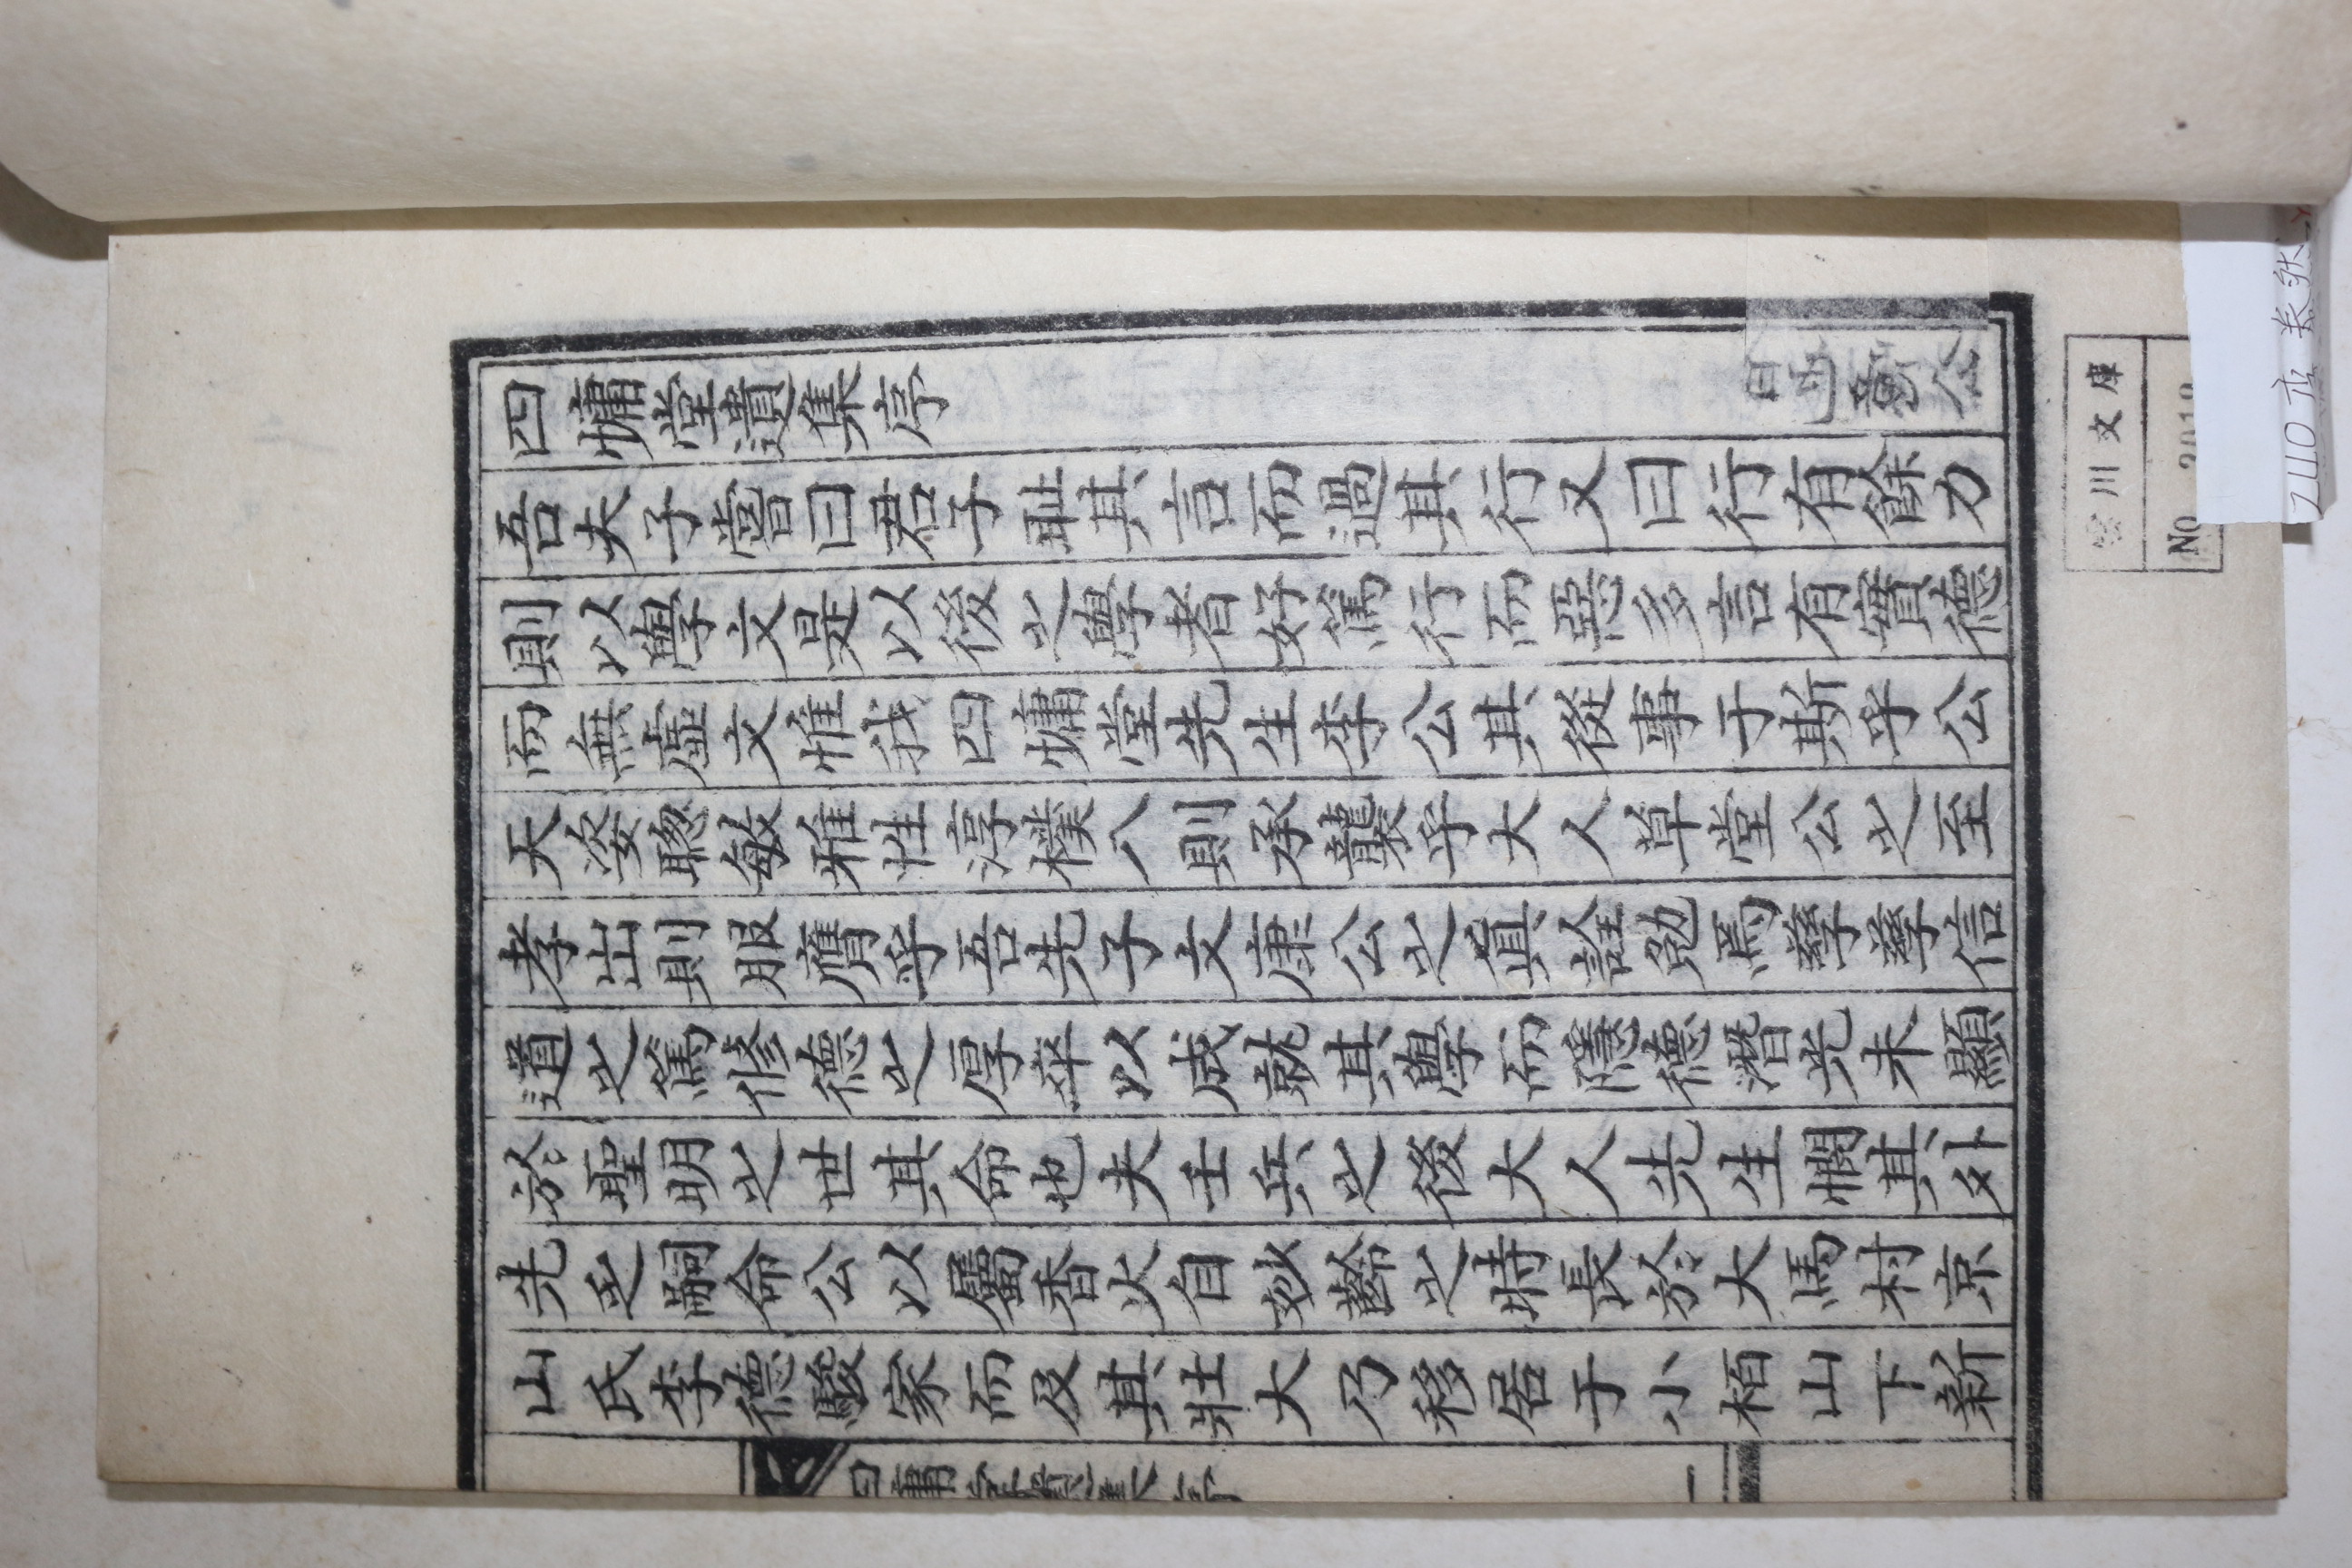 四慵堂遺集序
吾夫子嘗曰君子耻其言而過其行又曰行有餘力
則以學文是以後之學者好篤行而惡多言有實德
而無虛文惟我四慵堂先生李公其從事于斯乎公
天姿聰敏雅性淳樸八則承襲乎大人草堂公之至
孝出則服膺乎吾先子文康公之眞詮勉焉孳孳信
道之篤修德之厚卒以成就其學而隱德潛光未顯
於聖明之世其命也夫壬兵之後大人先生憫其外
先乏嗣命公以屬香火自妙齡之時長於大馬村京
山氏李德駿家而及其壯大乃移居于小栢山下新
四慵堂遺集序
一
川文庫
NO
2110